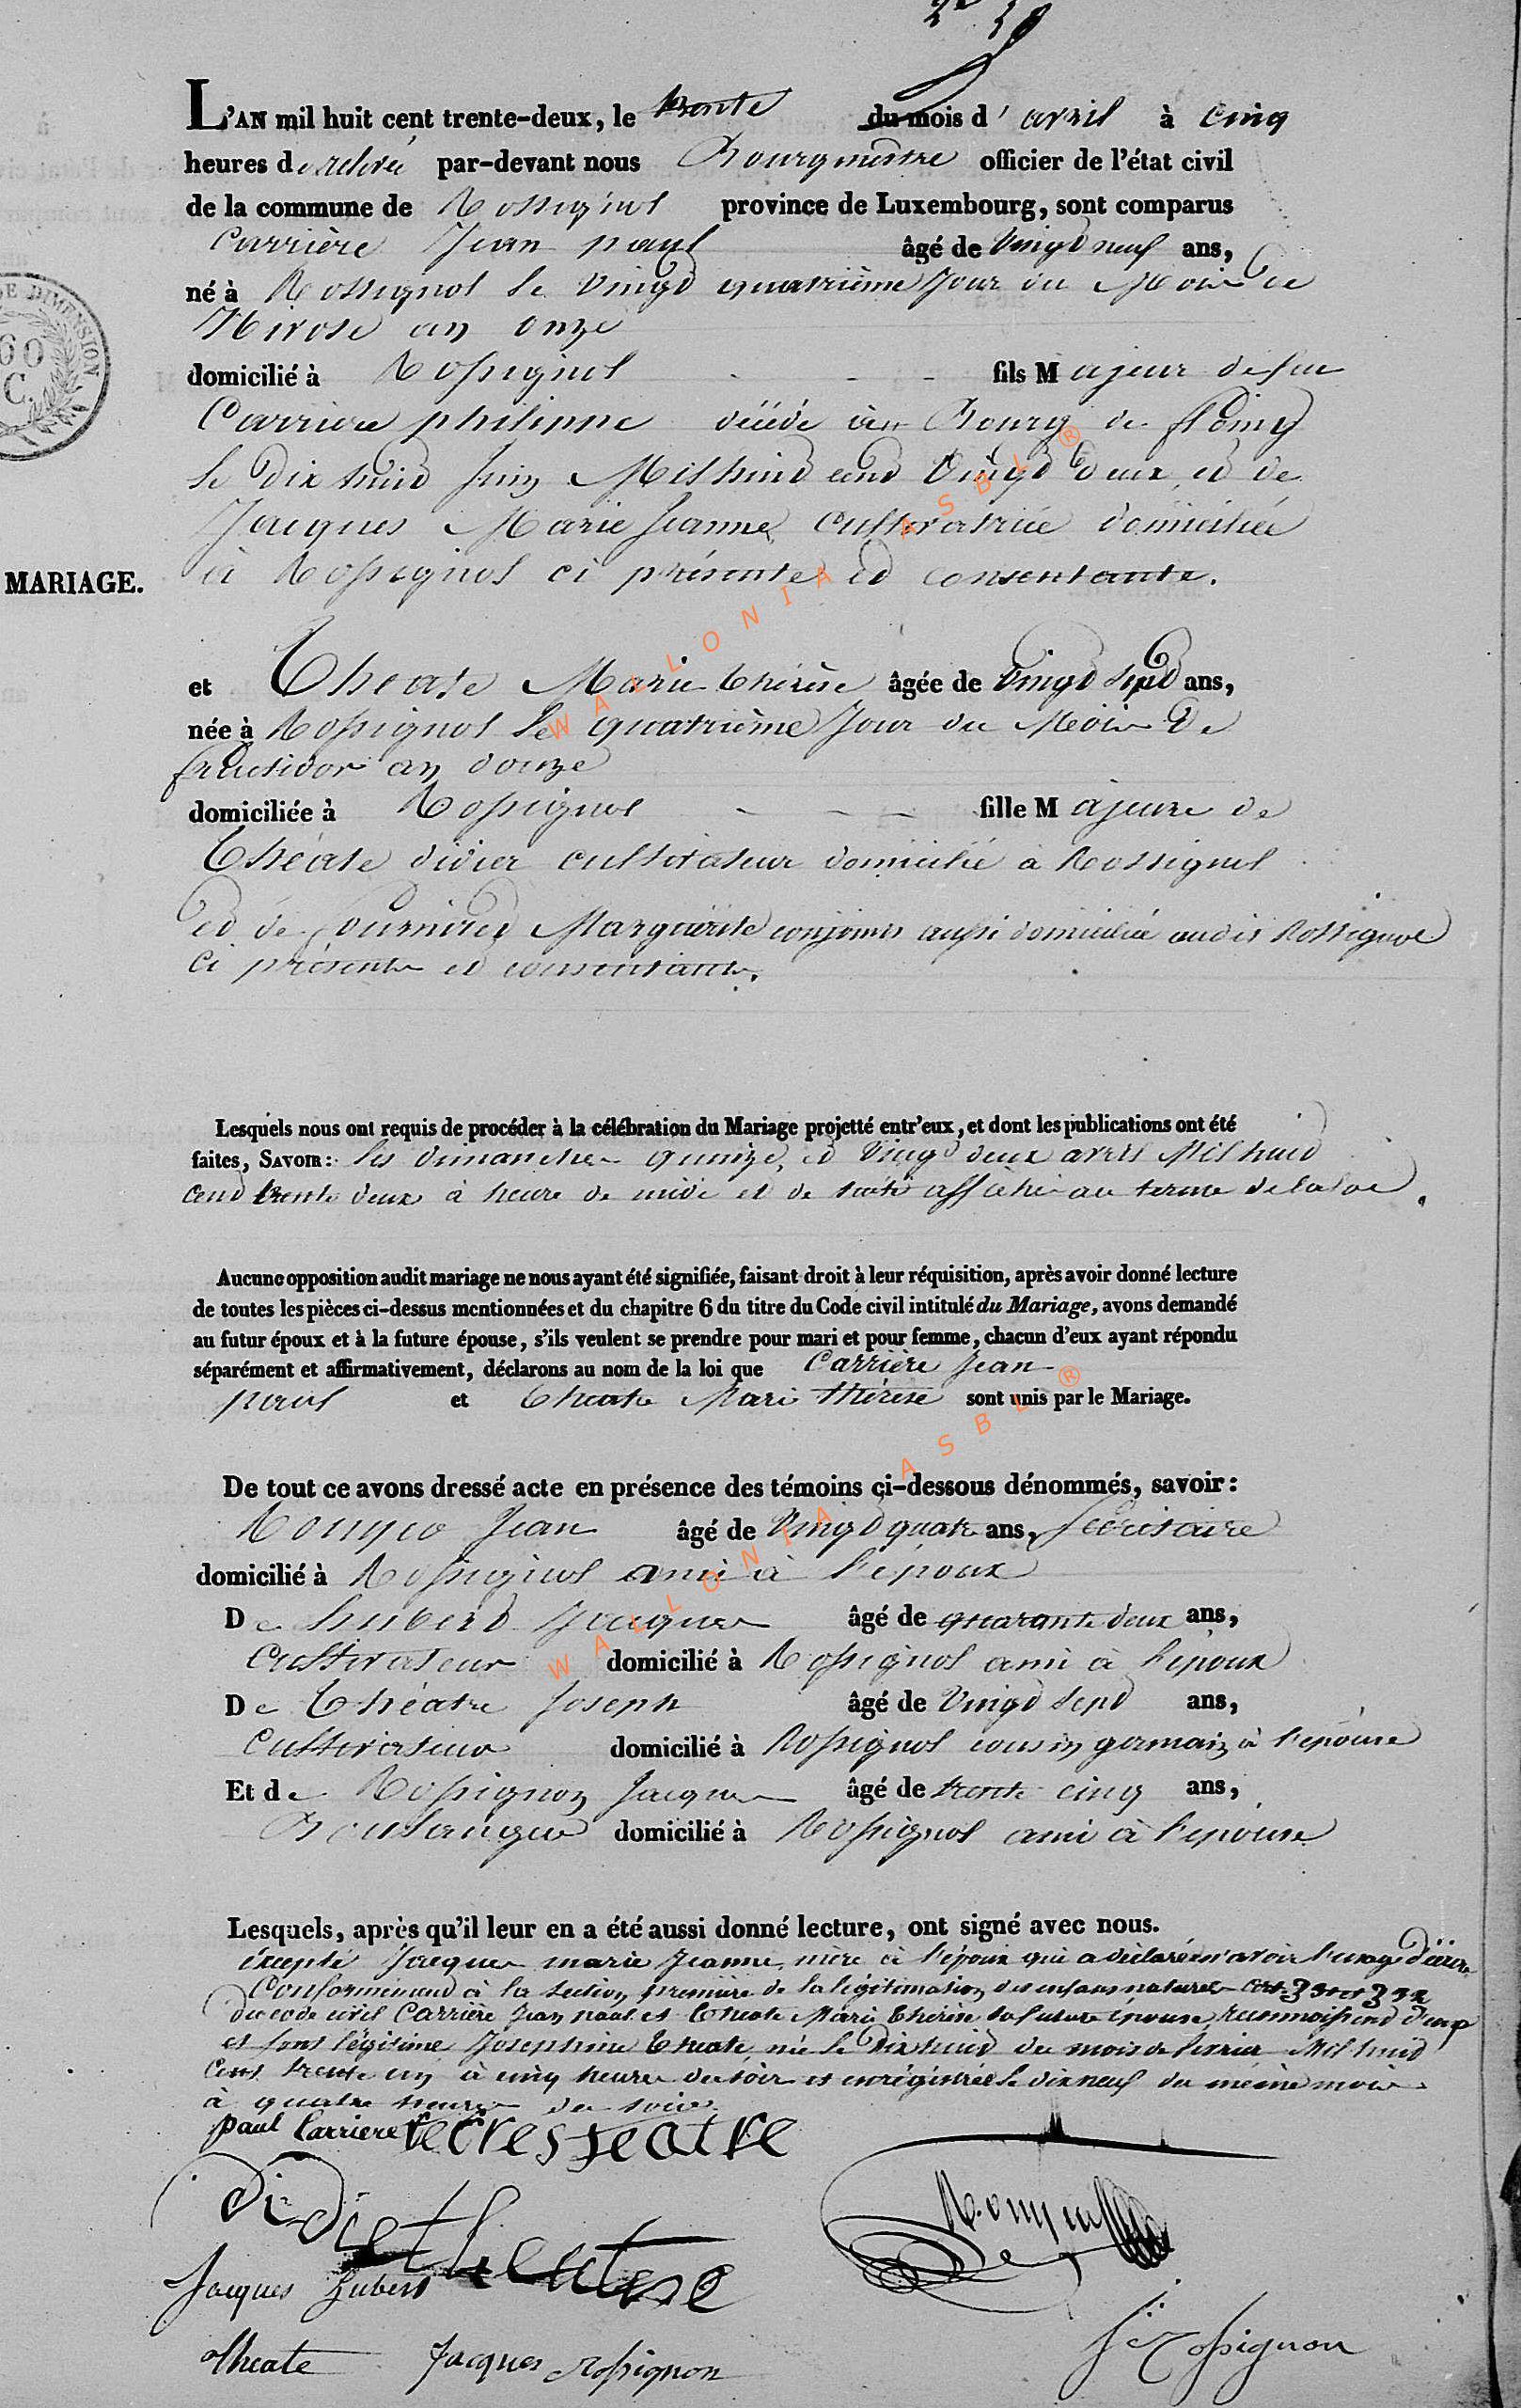 L'AN mil huit cent trente-deux, le trente du mois d' avril à cinq
heures de relevée par-devant nous Bourgmestre officier de l'état civil
de la commune de Rossignol province de Luxembourg, sont comparus
Carrière Jean paul âgé de Vingt neuf ans,
né à Rossignol le Vingt quatrième Jour du Mois de
Nivose an onze
domicilié à Rossignol fils Majeur de feu
Carriere philippe décédé Bourg de
le Dix huit Juin Mil huit cent Vingt Deux et de
Jacques Marie Jeanne Cultivatrice domiciliée
MARIAGE.
à Rossignol ci présente et consentante.
et Theate Marie thérèse âgée de Vingt Sept ans,
née à Rossignol le quatrième Jour du Mois de
fructidor an douze
domiciliée à Rossignol fille Majeure de
Théate didier cultivateur domicilié à Rossignol
et de Marguerite conjoints aussi domiciliée audit Rossignol
Ci présents et consentants.
Lesquels nous ont requis de procéder à la célébration du Mariage projetté entr'eux, et dont les publications ont été
faites, SAVOIR: les dimanches quinze, et Vingt deux avril Mil huit
cent trente deux à heure de midi et de suite affiché au terme de la loi.
Aucune opposition audit mariage ne nous ayant été signifiée, faisant droit à leur réquisition, après avoir donné lecture
de toutes les pièces ci-dessus mentionnées et du chapitre 6 du titre du Code civil intitulé du Mariage, avons demandé
au futur époux et à la future épouse, s'ils veulent se prendre pour mari et pour femme, chacun d'eux ayant répondu
séparément et affirmativement, déclarons au nom de la loi que Carrière Jean
paul et Theate Marie thérèse sont unis par le Mariage.
De tout ce avons dressé acte en présence des témoins ci-dessous dénommés, savoir:
Jean âgé de Vingt quatre ans, Secrétaire
domicilié à Rossignol ami à l'époux
De hubert Jacques âgé de quarante deux ans,
Cultivateur domicilié à Rossignol ami à l'époux
De Théatre Joseph âgé de Vingt Sept ans,
Cultivateur domicilié à Rossignol cousin germain à l'épouse
Et de Rossignon Jacques âgé de trente cinq ans,
Boulanger domicilié à Rossignol ami à l'épouse
Lesquels, après qu'il leur en a été aussi donné lecture, ont signé avec nous.
excepté Jacques marie Jeanne, mère à l'époux qui a déclaré n'avoir l'usage d'écrire
Conformément à la Section première de la légitimation des enfans naturels art. 331 et 332
du code civil Carrière Jean paul et Theate Marie thérèse la future épouse, reconnoissent
et font légitime Josephine theate, née le Dix huit du mois de février Mil huit
Cent trente un à cinq heures du soir et enrégistrée le dix neuf du même mois
à quatre heures du soir.
paul Carriere
Didie theatre
Jacques Hubert
Theate Jacques Rossignon
Rossignon
60
C.
DE DIMENSION
WALLONIA ASBL ®
WALLONIA ASBL ®